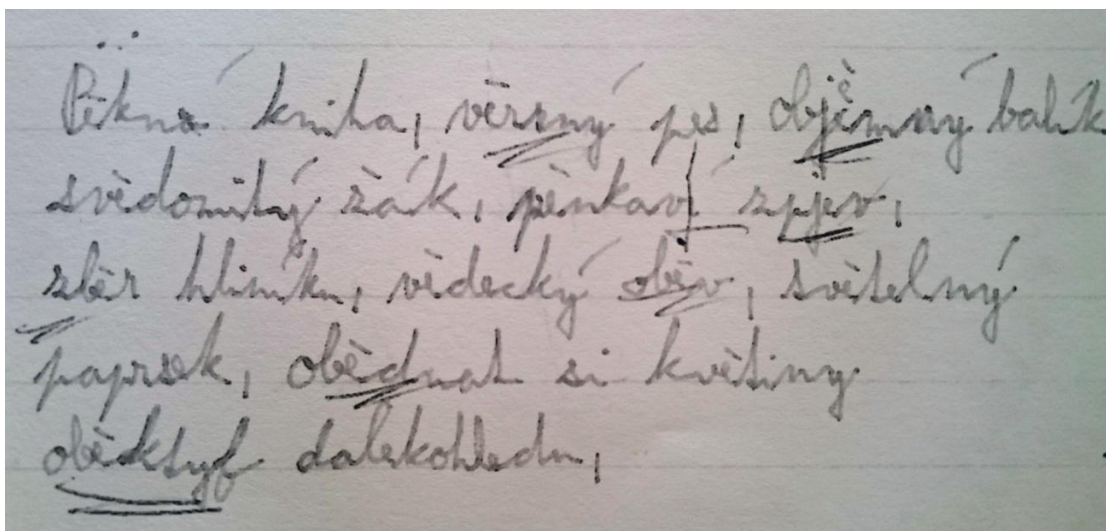 Pěkná kniha, věrzný pes, objěmný balík
svědomitý žák, pěnkaví zpjev,
zběr hliníku, vědecký oběv, světelný
paprsek, obědnat si květiny
oběktyf dalekohledu,